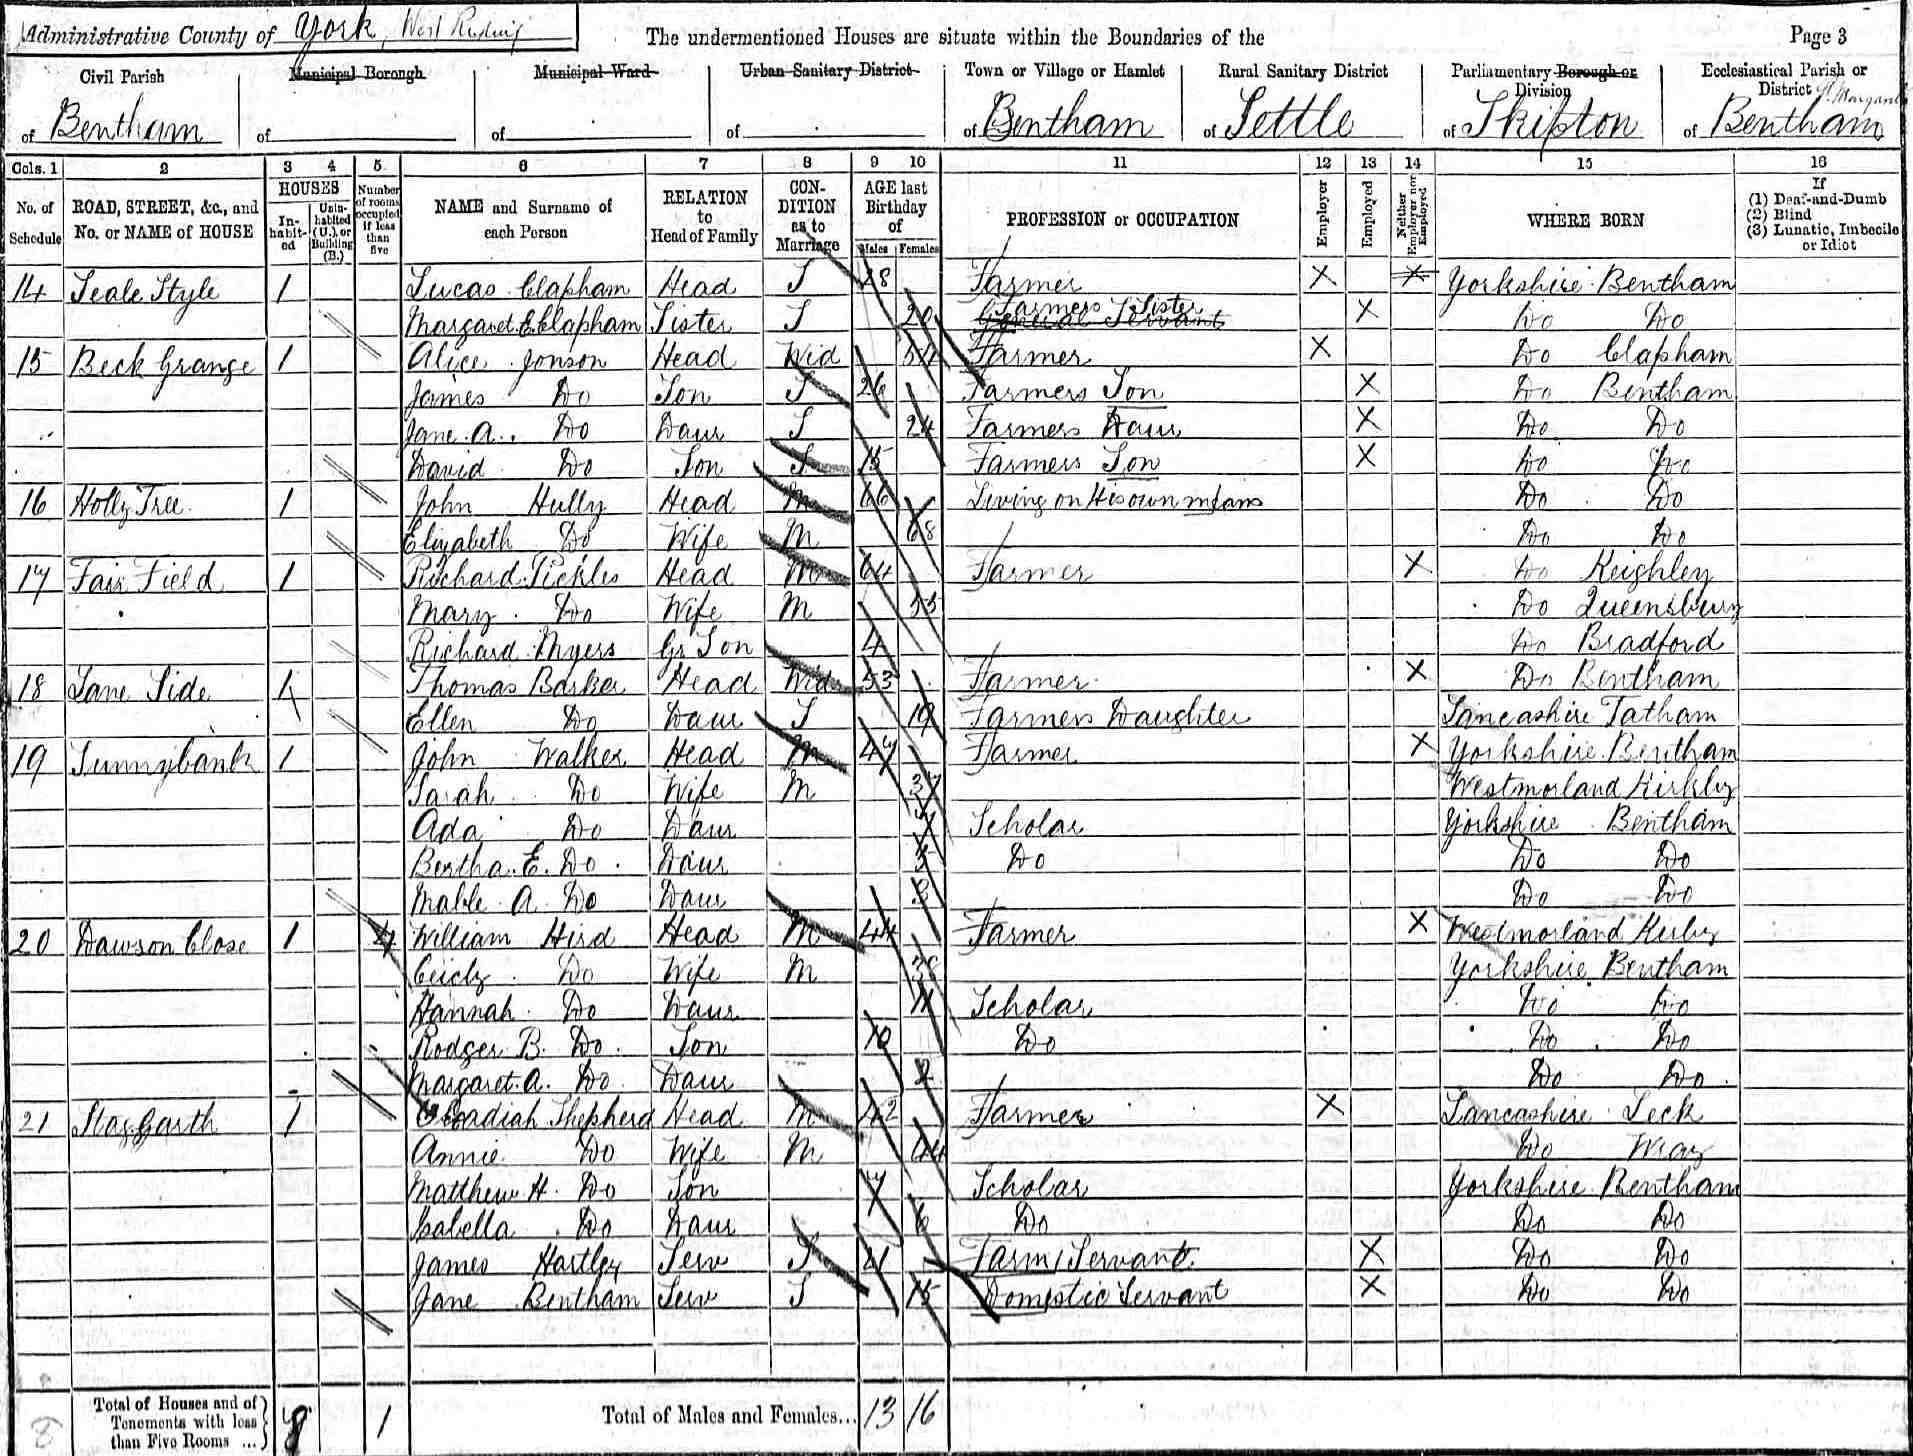 Administrative County of York, West Riding
The undermentioned Houses are situate within the Boundaries of the
Page 3
Civil Parish of Bentham
Municipal Borough of
Municipal Ward of
Urban Sanitary District of
Town or Village or Hamlet of Bentham
Rural Sanitary District of Settle
Parliamentary Borough or Division of Skipton
Ecclesiastical Parish or District of St. Margarets Bentham
Cols. 1 2 3 4 5 6 7 8 9 10 11 12 13 14 15 16
No. of Schedule
ROAD, STREET, &c., and No. or NAME of HOUSE
HOUSES
In-habit-ed
Unin-habited (U.), or Building (B.)
Number of rooms occupied if less than five
NAME and Surname of each Person
RELATION to Head of Family
CON-DITION as to Marriage
AGE last Birthday of
Males Females
PROFESSION or OCCUPATION
Employer
Employed
Neither Employer nor Employed
WHERE BORN
If
(1) Deaf-and-Dumb
(2) Blind
(3) Lunatic, Imbecile or Idiot
14 Seale Style 1 Lucas Clapham Head S 28 Farmer X X Yorkshire Bentham
Margaret E. Clapham Sister S 20 General Servant Farmers Sister X Do Do
15 Beck Grange 1 Alice Jonson Head Wid 54 Farmer X Do Clapham
James Do Son S 26 Farmers Son X Do Bentham
Jane A. Do Daur S 24 Farmers Daur X Do Do
David Do Son S 15 Farmers Son X Do Do
16 Holly Tree 1 John Hully Head M 66 Living on His own means Do Do
Elizabeth Do Wife M 68 Do Do
17 Fair Field 1 Richard Pickles Head 64 Farmer X Do Keighley
Mary Do Wife M 55 Do Queensbury
Richard Myers Gr Son 4 Do Bradford
18 Lane Side 1 Thomas Barker Head Wid 53 Farmer X Do Bentham
Ellen Do Daur S 19 Farmers Daughter Lancashire Tatham
19 Sunnybank 1 John Walker Head M 47 Farmer X Yorkshire Bentham
Sarah Do Wife M 37 Westmorland Kirkby
Ada Do Daur Scholar Yorkshire Bentham
Bertha E. Do Daur 5 Do Do Do
Mable A Do Daur 3 Do Do
20 Dawson Close 1 4 William Hird Head M 44 Farmer X Westmorland Kirby
Cicily Do Wife M Yorkshire Bentham
Hannah Do Daur 11 Scholar Do Do
Rodger B. Do Son 10 Do Do Do
Margaret A. Do Daur 2 Do Do
21 Staggarth 1 Obadiah Shepherd Head M 42 Farmer X Lancashire Leck
Annie Do Wife M 44 Do Wray
Matthew H. Do Son 7 Scholar Yorkshire Bentham
Isabella Do Daur 6 Do Do Do
James Hartley Serv S 21 Farm Servant X Do Do
Jane Bentham Serv S 15 Domestic Servant X Do Do
Total of Houses and of Tenements with less than Five Rooms ... 8 1 Total of Males and Females... 13 16